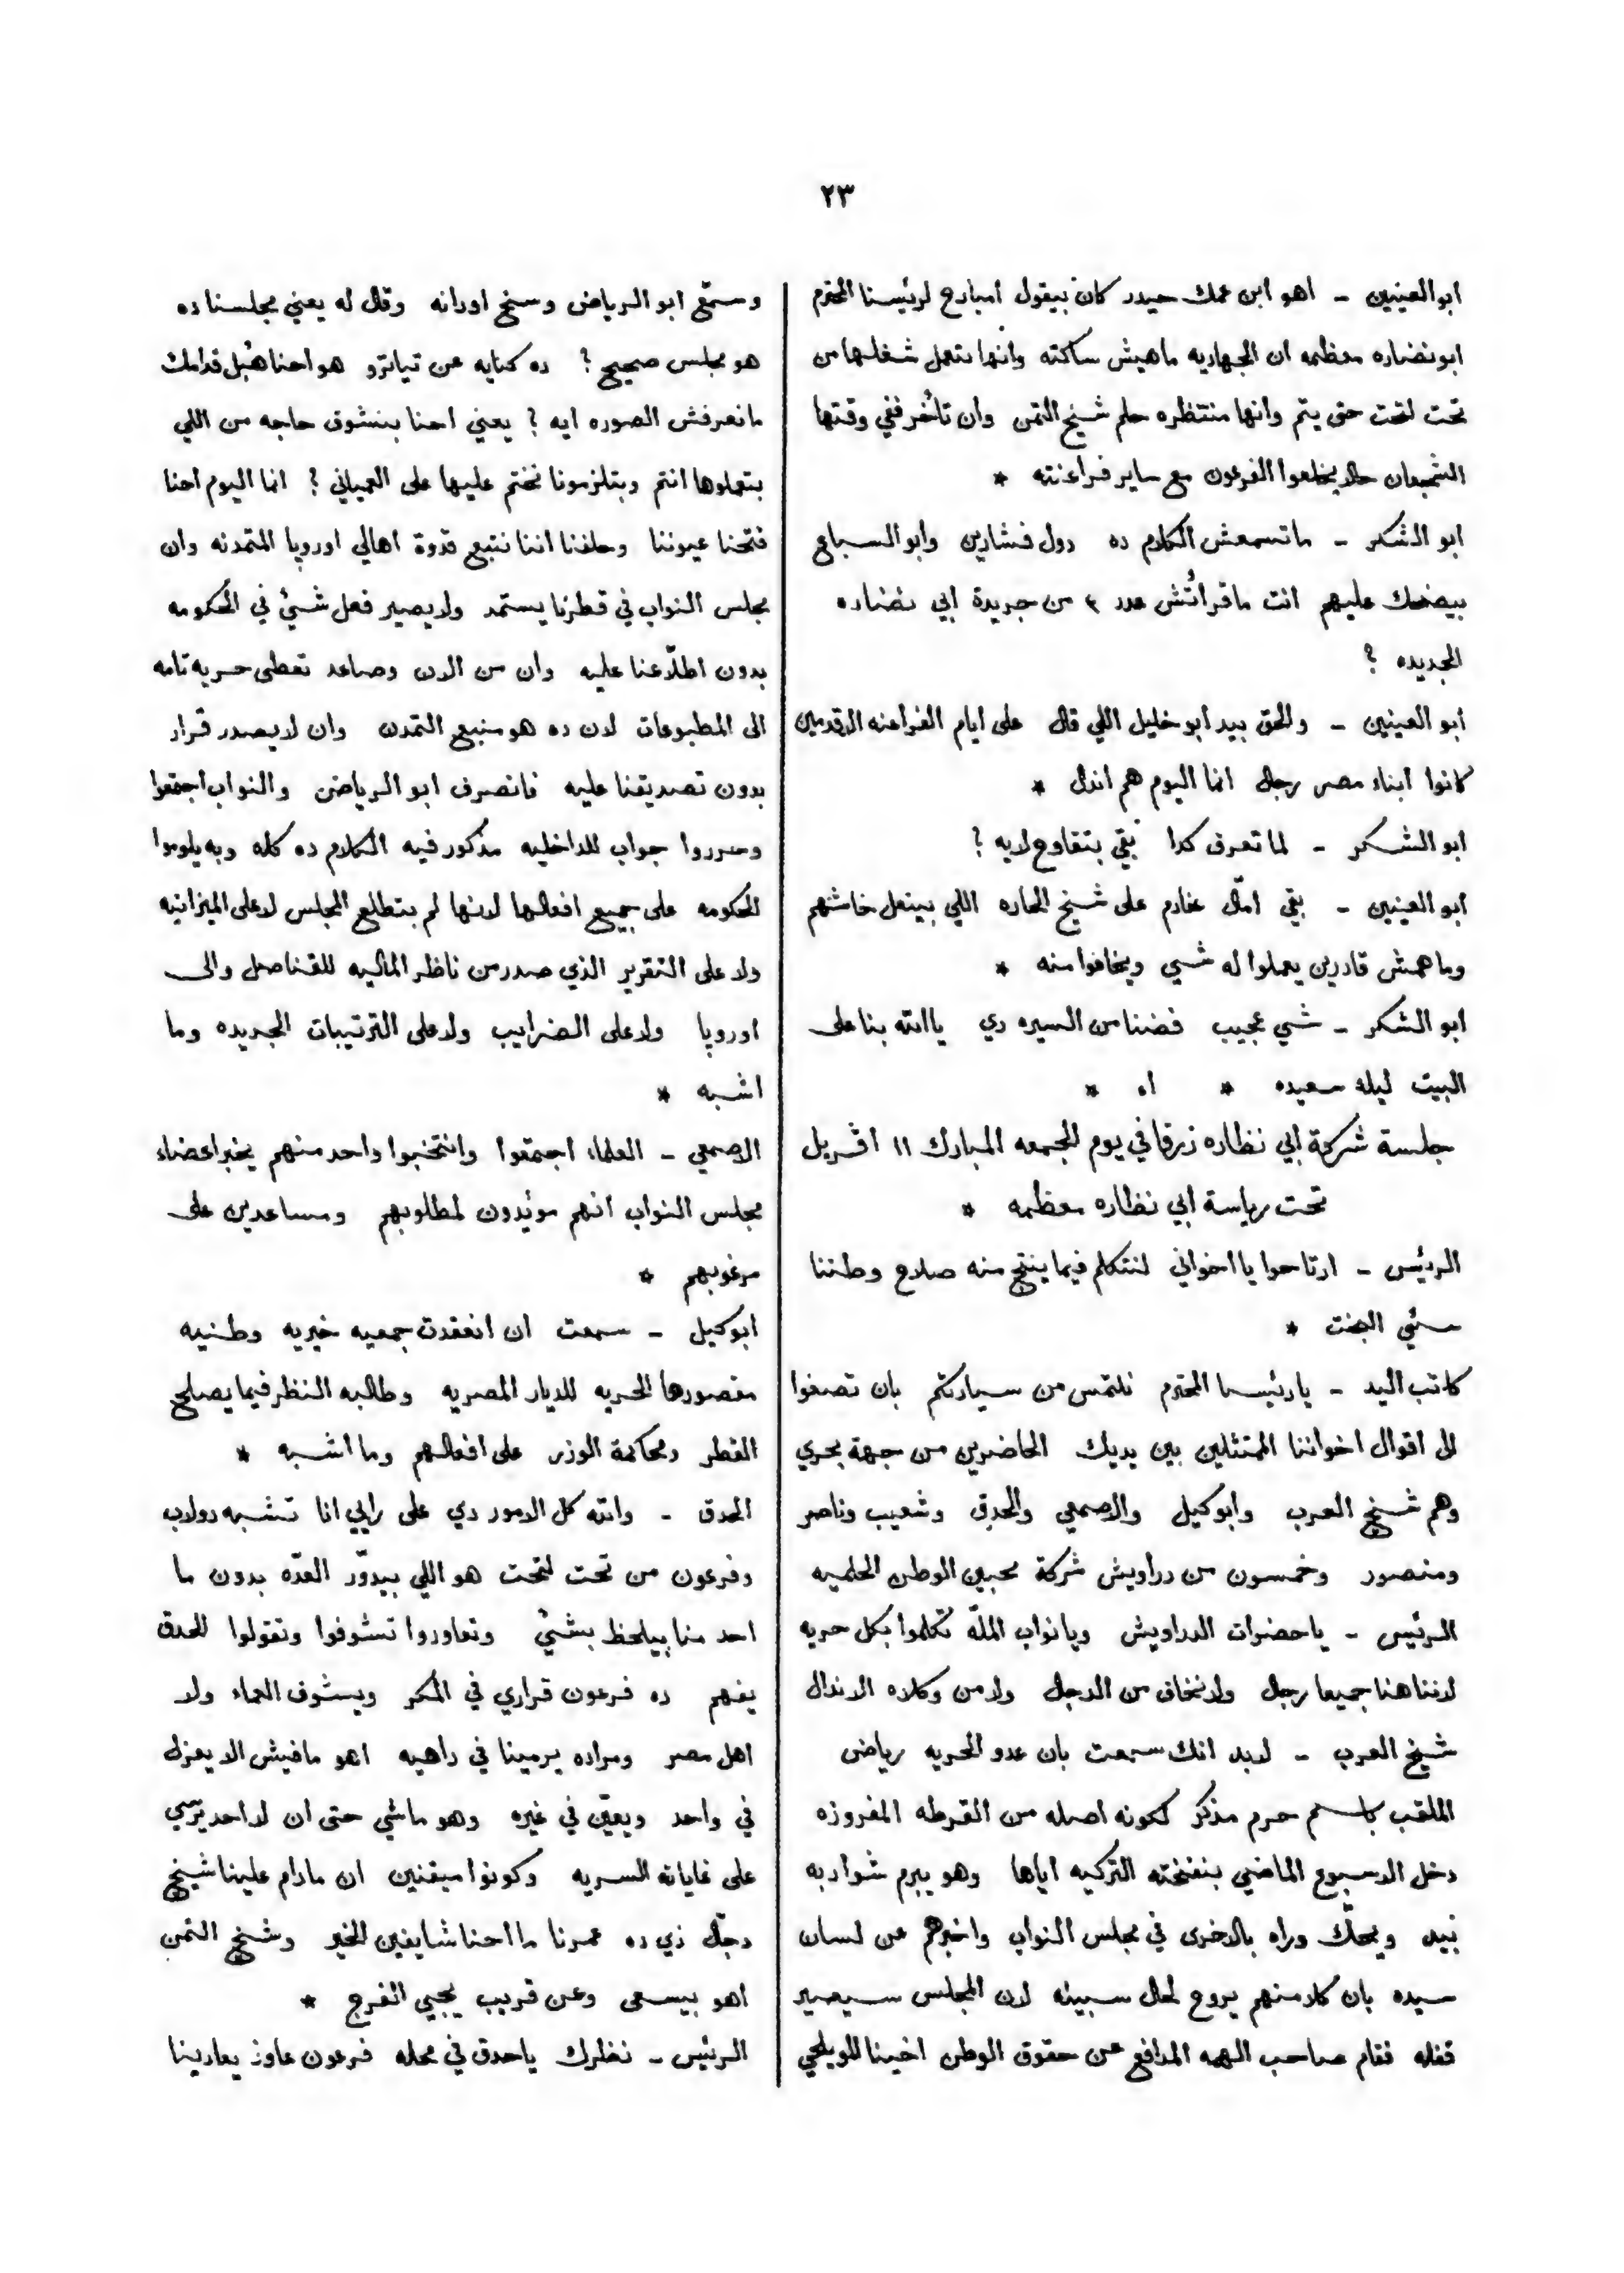 ٢٣
ابو العينين - اهو ابن عمك حيدر كان بيقول امبارح لرئيسنا المحترم
ابو نضاره معظمه ان الجهاديه ماهيش ساكته وانها بتعمل شغلها من
تحت لتحت حتى يتم وانها منتظره حلم شيخ التمن وان تأخر ففي وقتها
الشجعان حالا يخلعوا الفرعون مع ساير فراعنته *
ابو الشكر - ماتسمعش الكلام ده دول فشارين وابو السباع
بيضحك عليهم انت ماقرأتش عدد ٤ من جريدة ابي نضاره
الجديده ؟
ابو العينين - والحق بيد ابو خليل اللي قال على ايام الفراعنه الاقدمين
كانوا ابناء مصر رجال انما اليوم هم اندال *
ابو الشكر - لما تعرف كدا بقي بتقاوح لايه ؟
ابو العينين - بقي امال خادم على شيخ الحاره اللي بينعل خاشهم
وماهمش قادرين يعملوا له شي ويخافوا منه *
ابو الشكر - شي عجيب فضنا من السيره دي ياالله بنا على
البيت ليله سعيده * اه *
جلسة شركة ابي نظاره زرقا في يوم الجمعه المبارك ١١ افريل
تحت رياسة ابي نظاره معظمه *
الرئيس - ارتاحوا يا اخواني لنتكلم فيما ينتج منه صلاح وطننا
سئي البخت *
كاتب اليد - يا رئيسنا المحترم نلتمس من سيادتكم بان تصغوا
الى اقوال اخواننا المتثلين بين يديك الحاضرين من جهة بحري
وهم شيخ العرب وابو كيل والاصمعي والحدق وشعيب وناصر
ومنصور وخمسون من دراويش شركة محبين الوطن الحلميه
الرئيس - ياحضرات الدراويش ويانواب الملّه تكلموا بكل حريه
لاننا هنا جميعا رجال ولا نخاف من الدجال ولا من وكلاه الاندال
شيخ العرب - لابد انك سمعت بان عدو الحريه رياض
الملقب باسم حرم مذكر لكونه اصله من القرطه المفروزه
دخل الاسبوع الماضي بنفخته التركيه اياها وهو يبرم شواربه
بيد ويحكّ وراه بالاخرى في مجلس النواب واخبرهم عن لسان
سيده بان كلا منهم يروح لحال سبيله لان المجلس سيصير
قفله فقام صاحب الهمه المدافع عن حقوق الوطن اخينا المويلحي
وسمّع ابو الرياض وسنخ اودانه وقال له يعني مجلسنا ده
هو مجلس صحيح ؟ ده كنايه عن تياترو هو احنا هُبل قدامك
مانعرفش الصوره ايه ؟ يعني احنا بنشوف حاجه من اللي
بتعملوها انتم وبتلزمونا نختم عليها على العمياني ؟ انما اليوم احنا
فتحنا عيوننا وحلفنا اننا نتبع قدوة اهالي اوروپا المتمدنه وان
مجلس النواب في قطرنا يستمد ولا يصير فعل شئ في الحكومه
بدون اطلاعنا عليه وان من الان وصاعد تعطى حريه تامه
الى المطبوعات لان ده هو منبع التمدن وان لا يصدر قرار
بدون تصديقنا عليه فانصرف ابو الرياض والنواب اجتمعوا
وحرروا جواب للداخليه مذكور فيه الكلام ده كله وبه يلوموا
الحكومه على جميع افعالها لانها لم بتطلع المجلس لا على الميزانيه
ولا على التقرير الذي صدر من ناظر الماليه للقناصل والى
اوروپا ولا على الضرايب ولا على الترتيبات الجديده وما
اشبه *
الاصمعي - العلماء اجتمعوا وانتخبوا واحد منهم يخبر اعضاء
مجلس النواب انهم مؤيدون لمطلوبهم ومساعدين على
مرغوبهم *
ابو كيل - سمعت ان انعقدت جمعيه خيريه وطنيه
مقصورها الحريه للديار المصريه وطالبه النظر فيما يصلح
القطر ومحاكمة الوزر على افعالهم وما اشبه *
الحدق - والله كل الامور دي على رايي انا تشبه دولاب
وفرعون من تحت لتحت هو اللي بيدوّر العدّه بدون ما
احد منا بيلحظ بشئ وتعاوروا تشوفوا وتقولوا للحدق
يفهم ده فرعون قراري في المكر ويشوف العماء ولا
اهل مصر ومراده يرمينا في داهيه اهو مافيش الا يعزل
في واحد ويعيّن في غيره وهو ماشي حتى ان لا احد يرّسي
على غاياته السريه وكونوا ميقنين ان مادام علينا شيخ
دجّال زي ده عمرنا ما احنا شايفين الخير وشيخ التمن
اهو بيسعى وعن قريب يجيي الفرج *
الرئيس - نظرك ياحدق في محله فرعون عاوز يعادينا